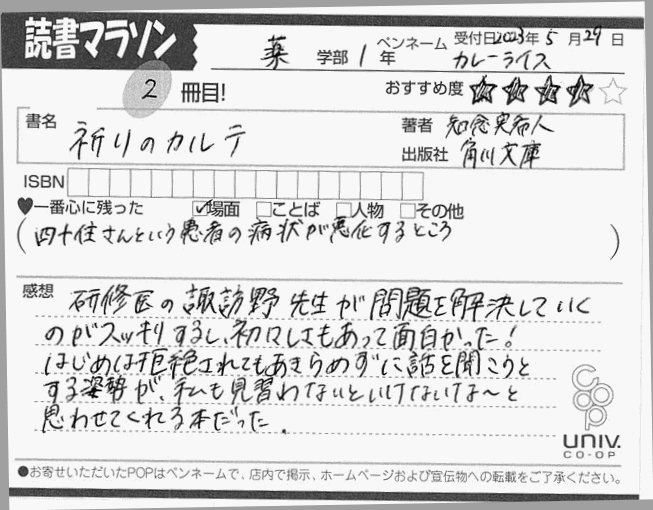 読書マラソン
受付日2023年5月29日
薬 学部 1 年 ペンネーム カレーライス
2 冊目!
おすすめ度 ★★★★☆
書名 祈りのカルテ
著者 知念実希人
出版社 角川文庫
ISBN
♥一番心に残った ☑場面 □ことば □人物 □その他
(四十住さんという患者の病状が悪化するところ)
感想 研修医の諏訪野先生が問題を解決していく
のがスッキリするし、初々しさもあって面白かった!
はじめは拒絶されてもあきらめずに話を聞こうと
する姿勢が、私も見習わないといけないな〜と
思わせてくれる本だった.
coop
UNIV.
CO-OP
●お寄せいただいたPOPはペンネームで、店内で掲示、ホームページおよび宣伝物への転載をご了承ください。